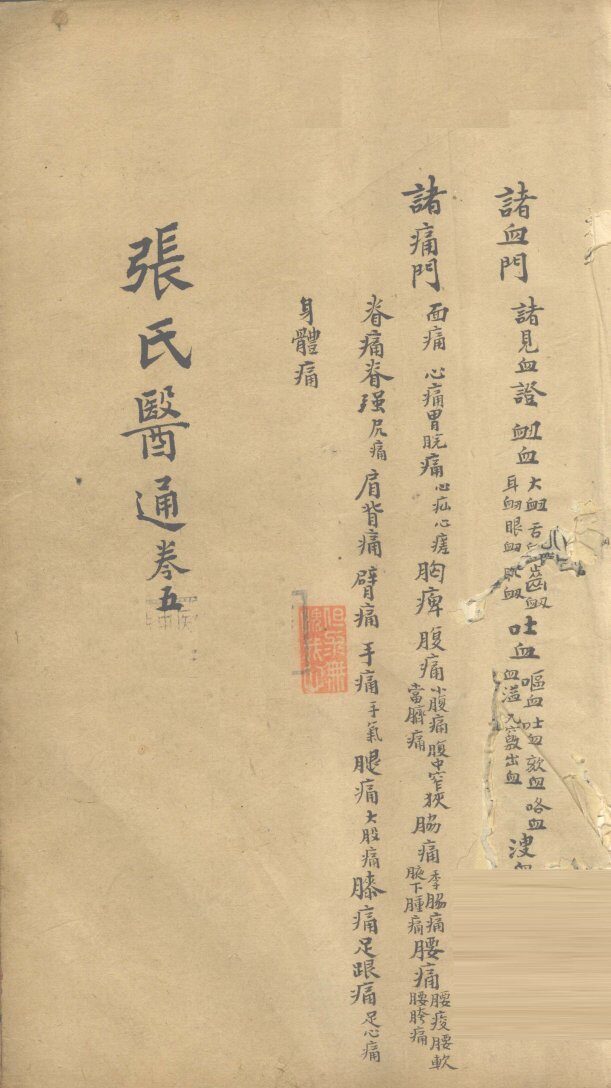 諸血門 諸見血證 衄血 大衄 舌衄 齒衄 耳衄 眼衄 吐血 嘔血 吐血 欬血 咯血 血溢 九竅出血 溲血
諸痛門 面痛 心痛胃脘痛 心疝心瘥 胸痺 腹痛 小腹痛 腹中窄狹 當臍痛 脇痛 季脇痛 腋下腫痛 腰痛 腰痠腰軟 腰胯痛
脊痛脊强 尻痛 肩背痛 臂痛 手痛 手氣 腿痛 大股痛 膝痛 足跟痛 足心痛
身體痛
張氏醫通卷五